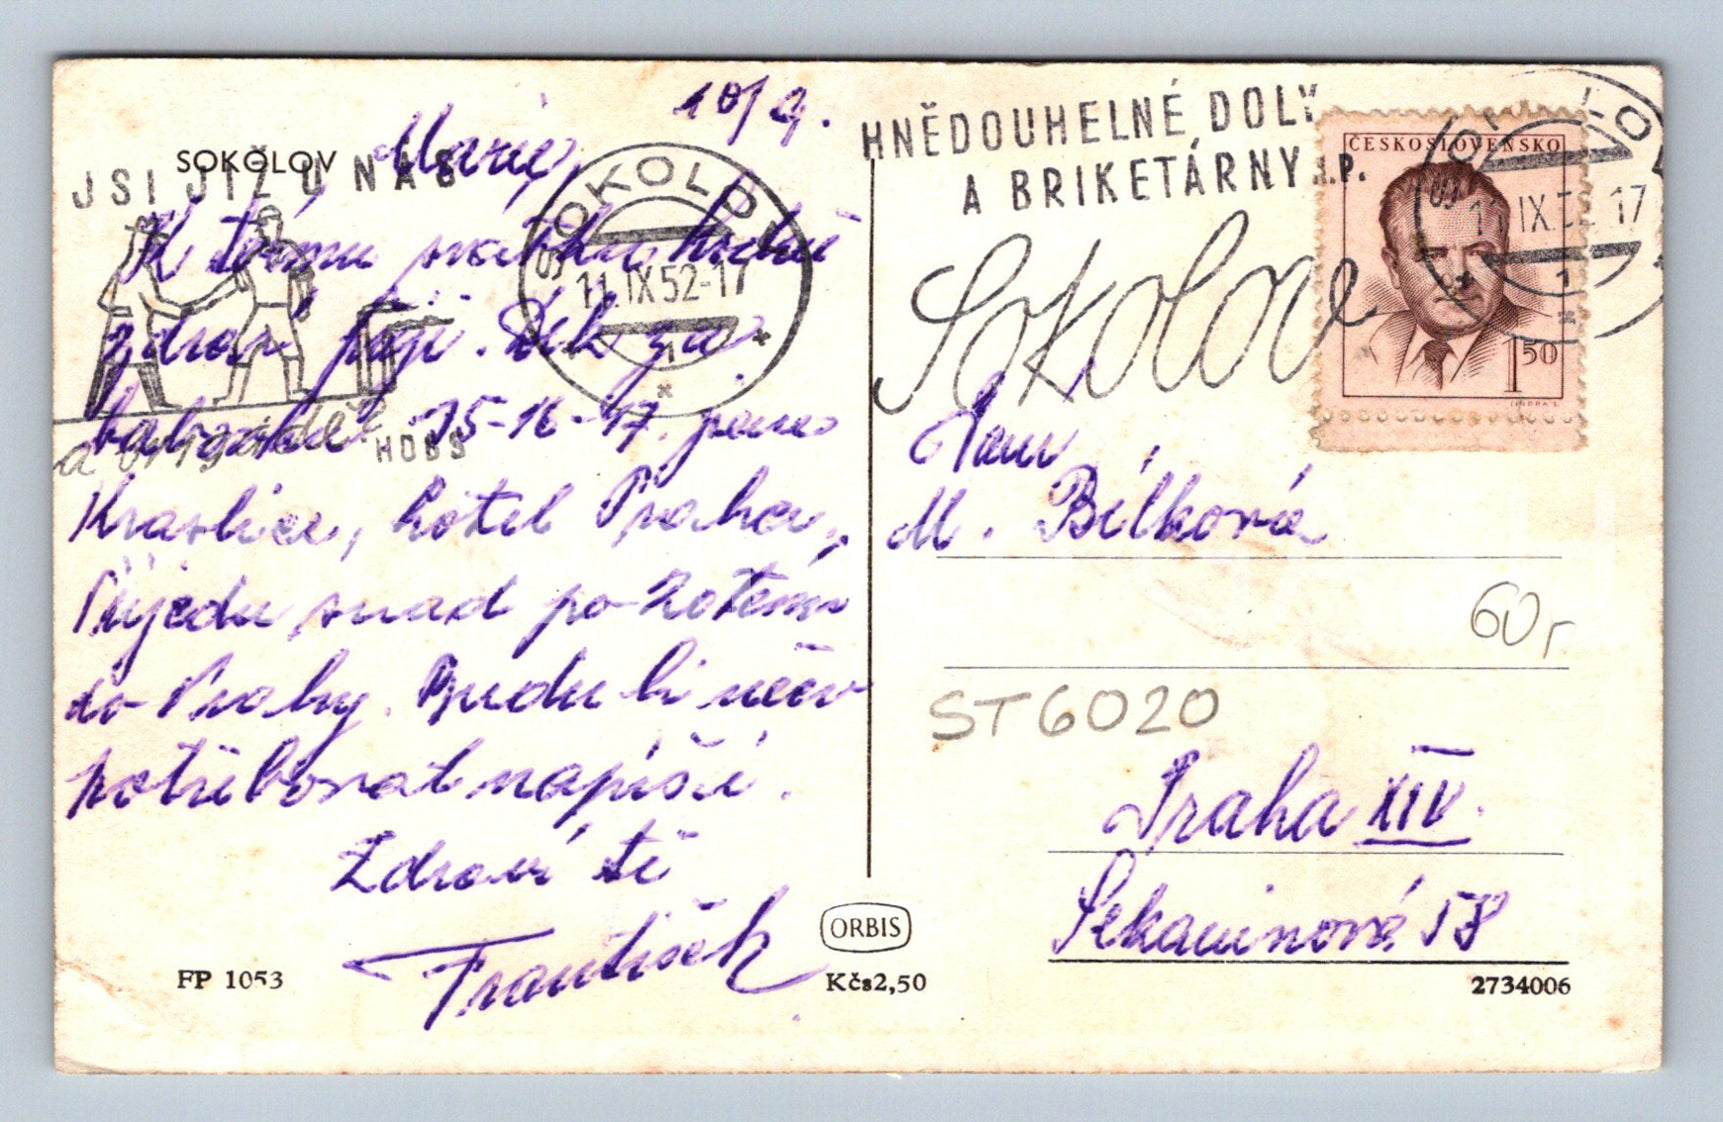 SOKOLOV
JSI JIŽ U NÁS
a brigádě
HDBS
SOKOLOV
11.IX52-17
1
10/9.
Marie,
K tvému svátku hodně
zdraví přeji. Dík za
15-16-17.
Kraslice, hotel Praha,
Přijedu snad po-
do Prahy. Budu li něco
potřebovat napíši.
Zdraví tě
František
FP 1053
ORBIS
Kčs2,50
HNĚDOUHELNÉ DOLY
A BRIKETÁRNY N.P.
Sokolov
ČESKOSLOVENSKO
1 50
11.IX.52-17
1
M. Bílková
60,-
ST6020
Praha XIV.
Sekaninová 58
2734006